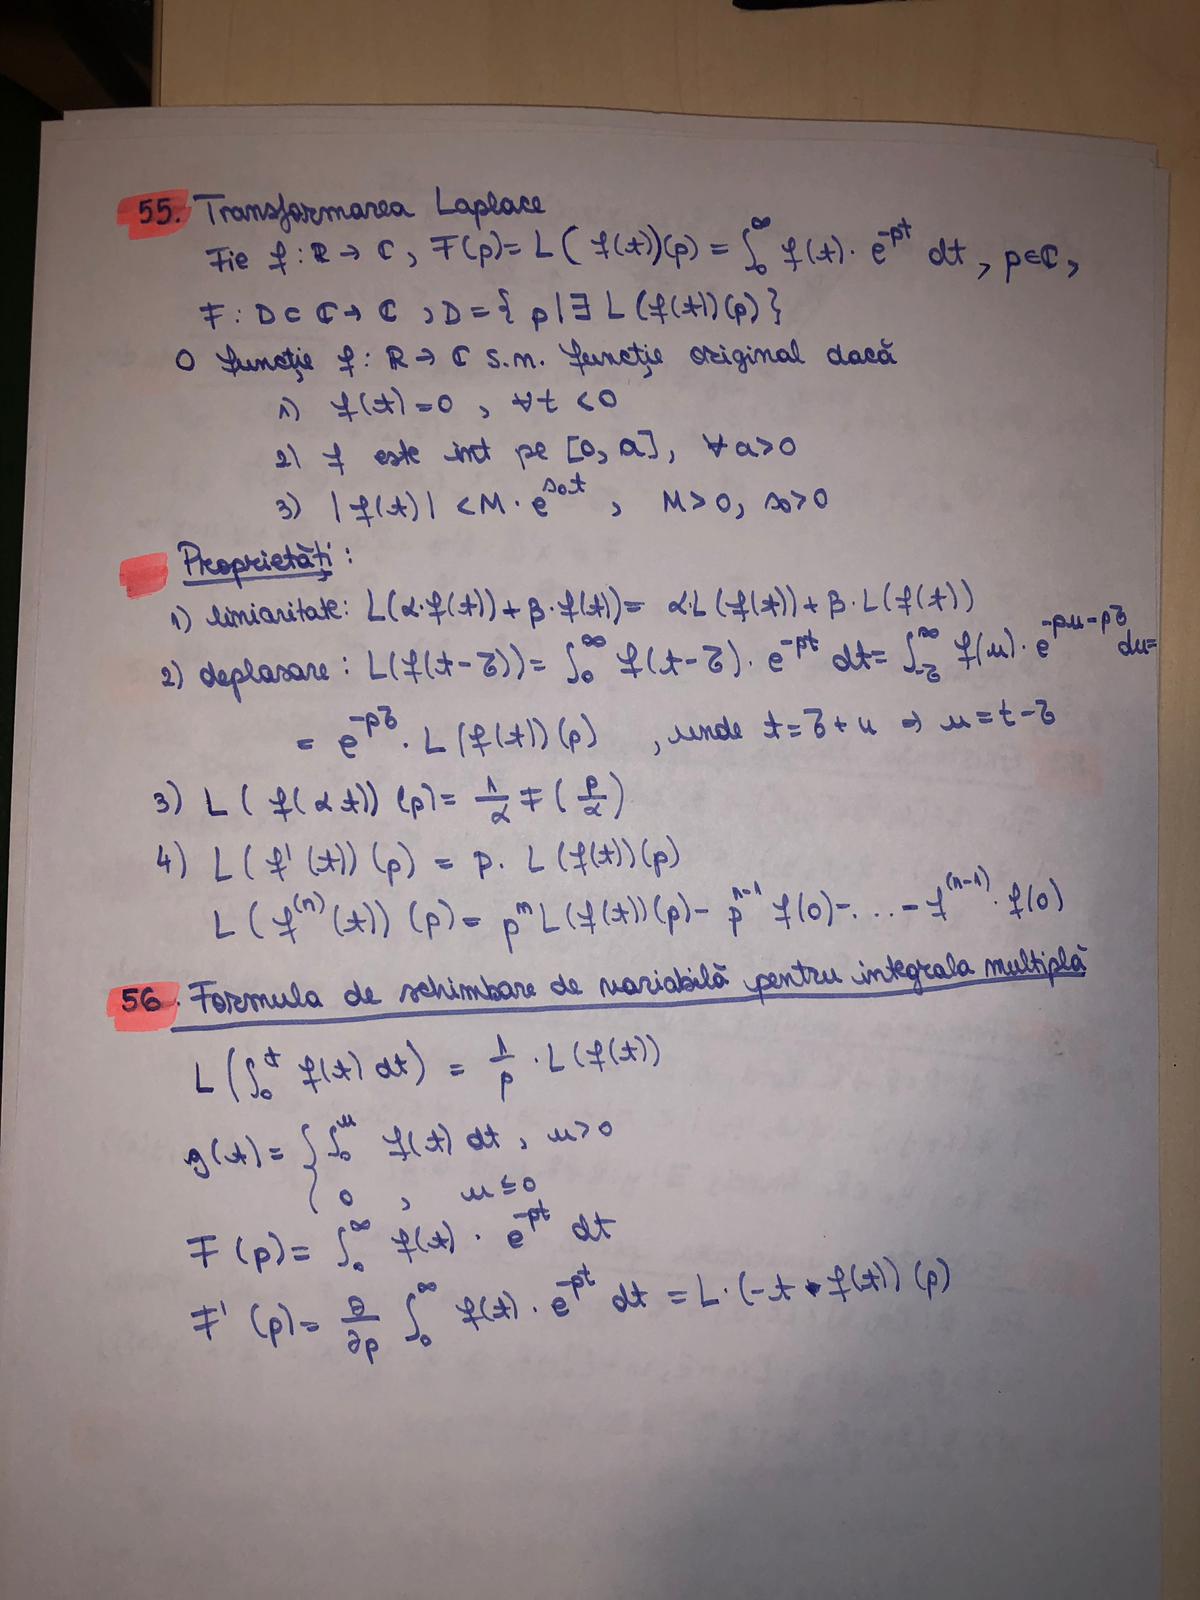 55. Transformarea Laplace
Fie f: ℝ → ℂ, F(p) = L(f(t))(p) = ∫₀^∞ f(t) · e^{-pt} dt, p∈ℂ,
F: D⊂ℂ → ℂ, D = { p | ∃ L(f(t))(p) }
O funcție f: ℝ → ℂ s.n. funcție original dacă
1) f(t) = 0, ∀t < 0
2) f este int pe [0, a], ∀a>0
3) |f(t)| < M · e^{s₀t}, M>0, s₀>0
Proprietăți:
1) liniaritate: L(α·f(t)) + β·f(t)) = α·L(f(t)) + β·L(f(t))
2) deplasare: L(f(t-τ)) = ∫₀^∞ f(t-τ) · e^{-pt} dt = ∫_{-τ}^∞ f(u) · e^{-pu-pτ} du =
= e^{-pτ} · L(f(t))(p) , unde t = τ+u ⇒ u = t-τ
3) L(f(αt))(p) = 1/α F(p/α)
4) L(f'(t))(p) = p · L(f(t))(p)
L(f^{(n)}(t))(p) = p^n L(f(t))(p) - p^{n-1} f(0) - ... - f^{(n-1)} · f(0)
56. Formula de schimbare de variabilă pentru integrala multiplă
L(∫₀^t f(t) dt) = 1/p · L(f(t))
g(t) = { ∫₀^u f(t) dt, u>0
0 , u≤0
F(p) = ∫₀^∞ f(t) · e^{-pt} dt
F'(p) = ∂/∂p ∫₀^∞ f(t) · e^{-pt} dt = L·(-t · f(t))(p)